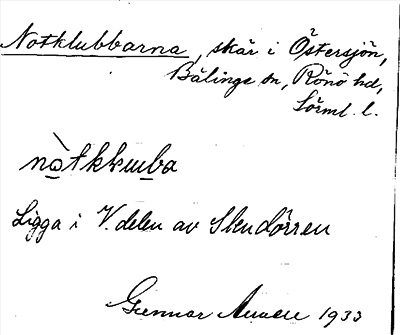 Notklubbarna, skär i Östersjön,
Bälinge sn, Rönö hd,
Sörml. l.
nòtkkɯba
Ligga i V. delen av Stendörren
Gunnar 1933